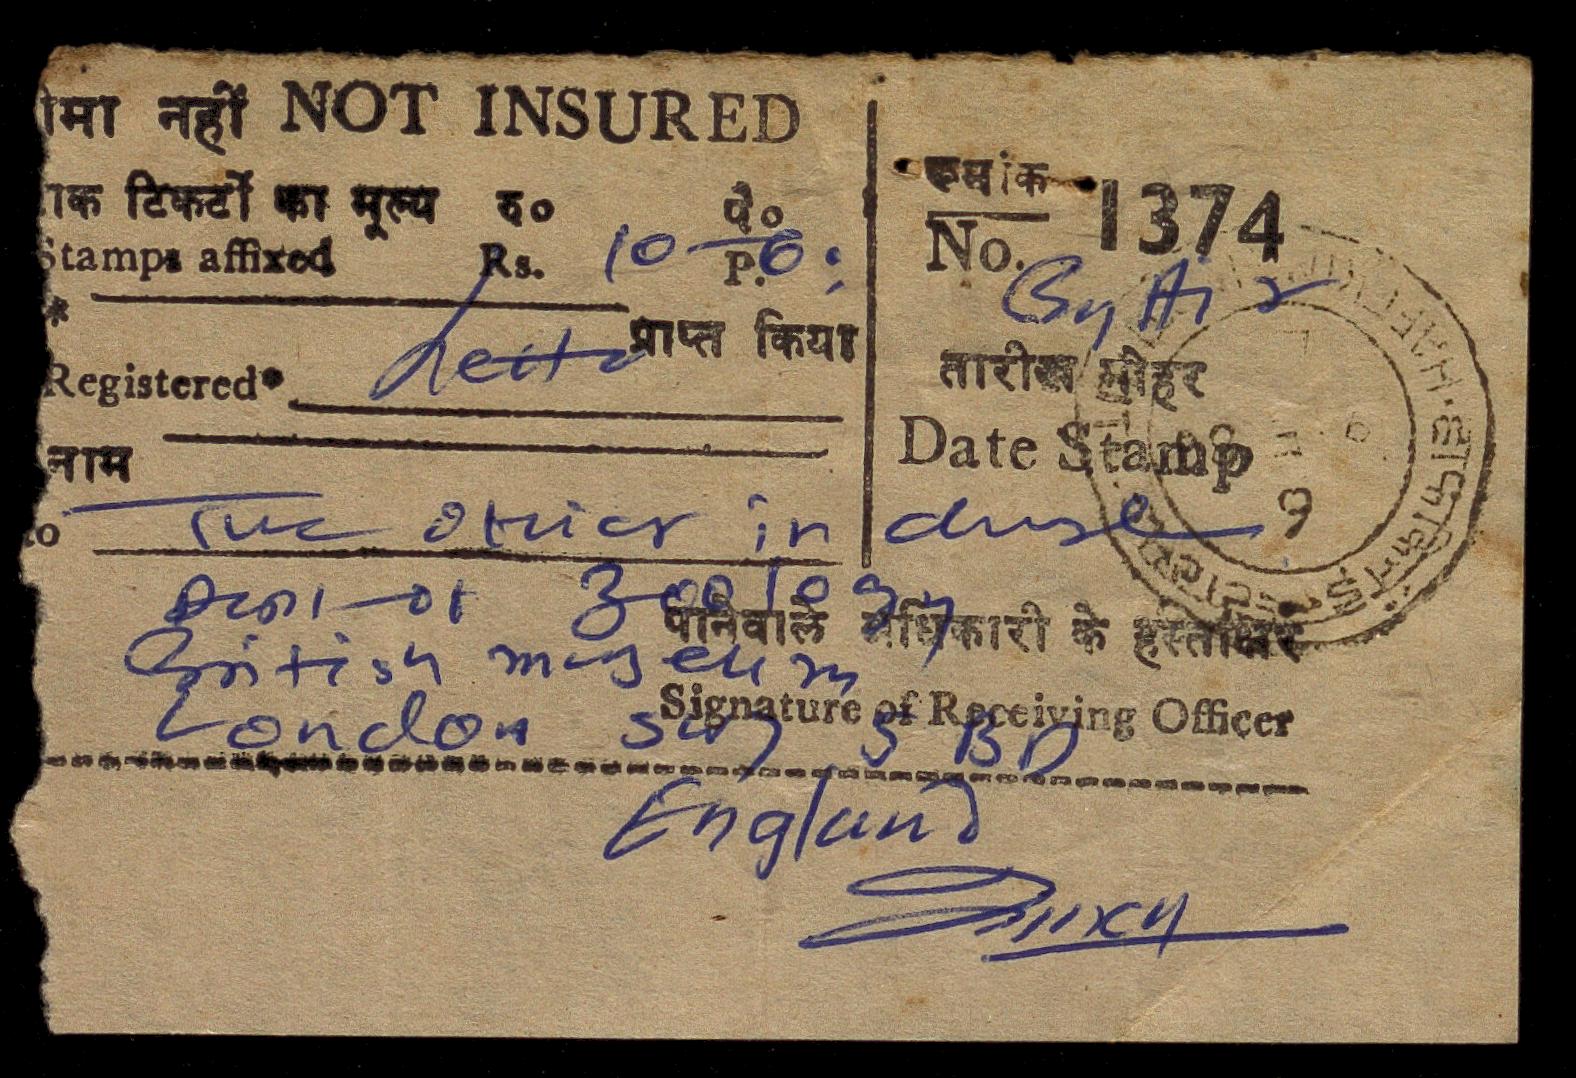 ीमा नहीं NOT INSURED
ाक टिकटों का मूल्य रु० पै०
Stamps affixed Rs. 10 P.
क्रमांक
No. 1374
By Air
* प्राप्त किया
Registered* Letter
तारीख मोहर
Date Stamp
नाम
to The in
Zoology
पानेवाले अधिकारी के हस्ताक्षर
British museum
Signature of Receiving Officer
London SW 5 BD
England